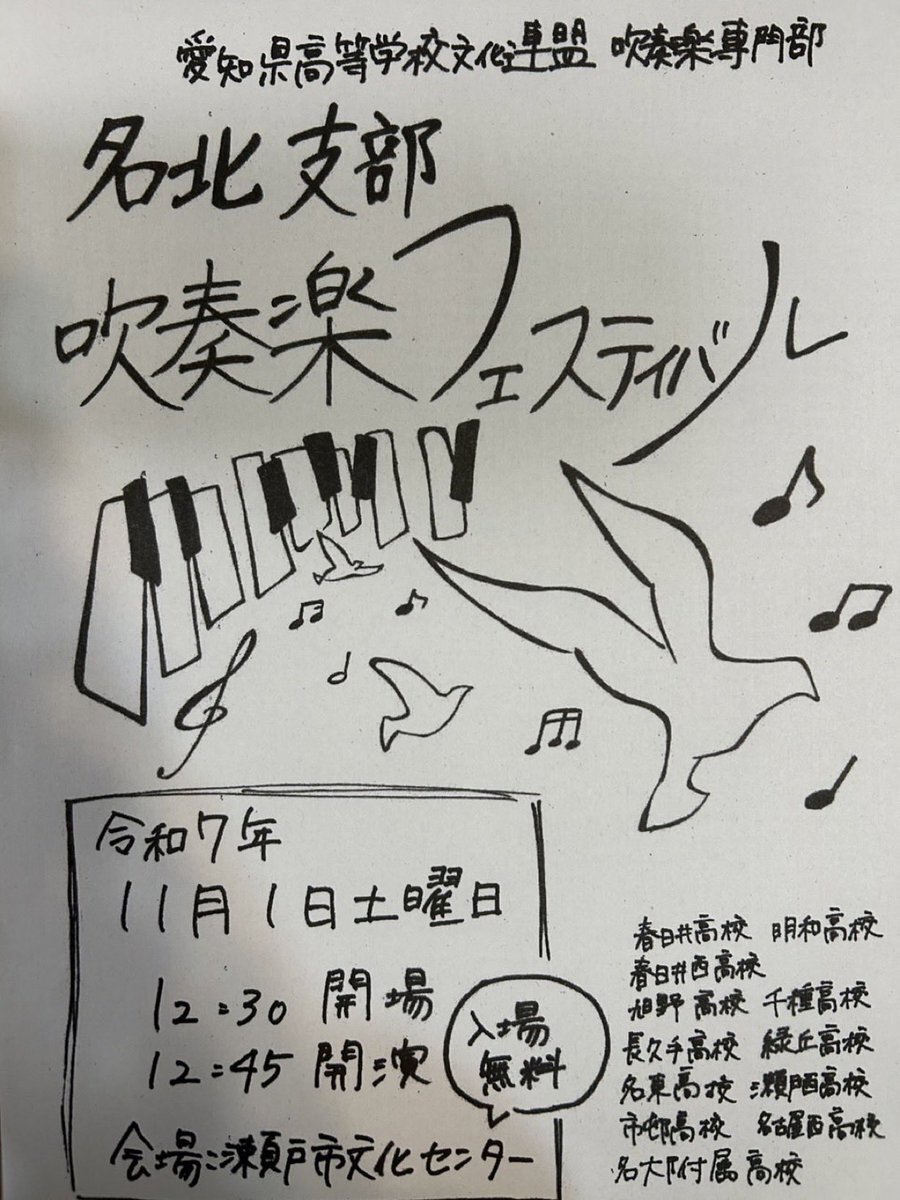 愛知県高等学校文化連盟 吹奏楽専門部
名北支部
吹奏楽フェスティバル
令和7年
11月1日土曜日
12:30 開場
12:45 開演
入場
無料
会場:瀬戸市文化センター
春日井高校 明和高校
春日井西高校
旭野高校 千種高校
長久手高校 緑丘高校
名東高校 瀬戸西高校
市邨高校 名古屋西高校
名大附属高校